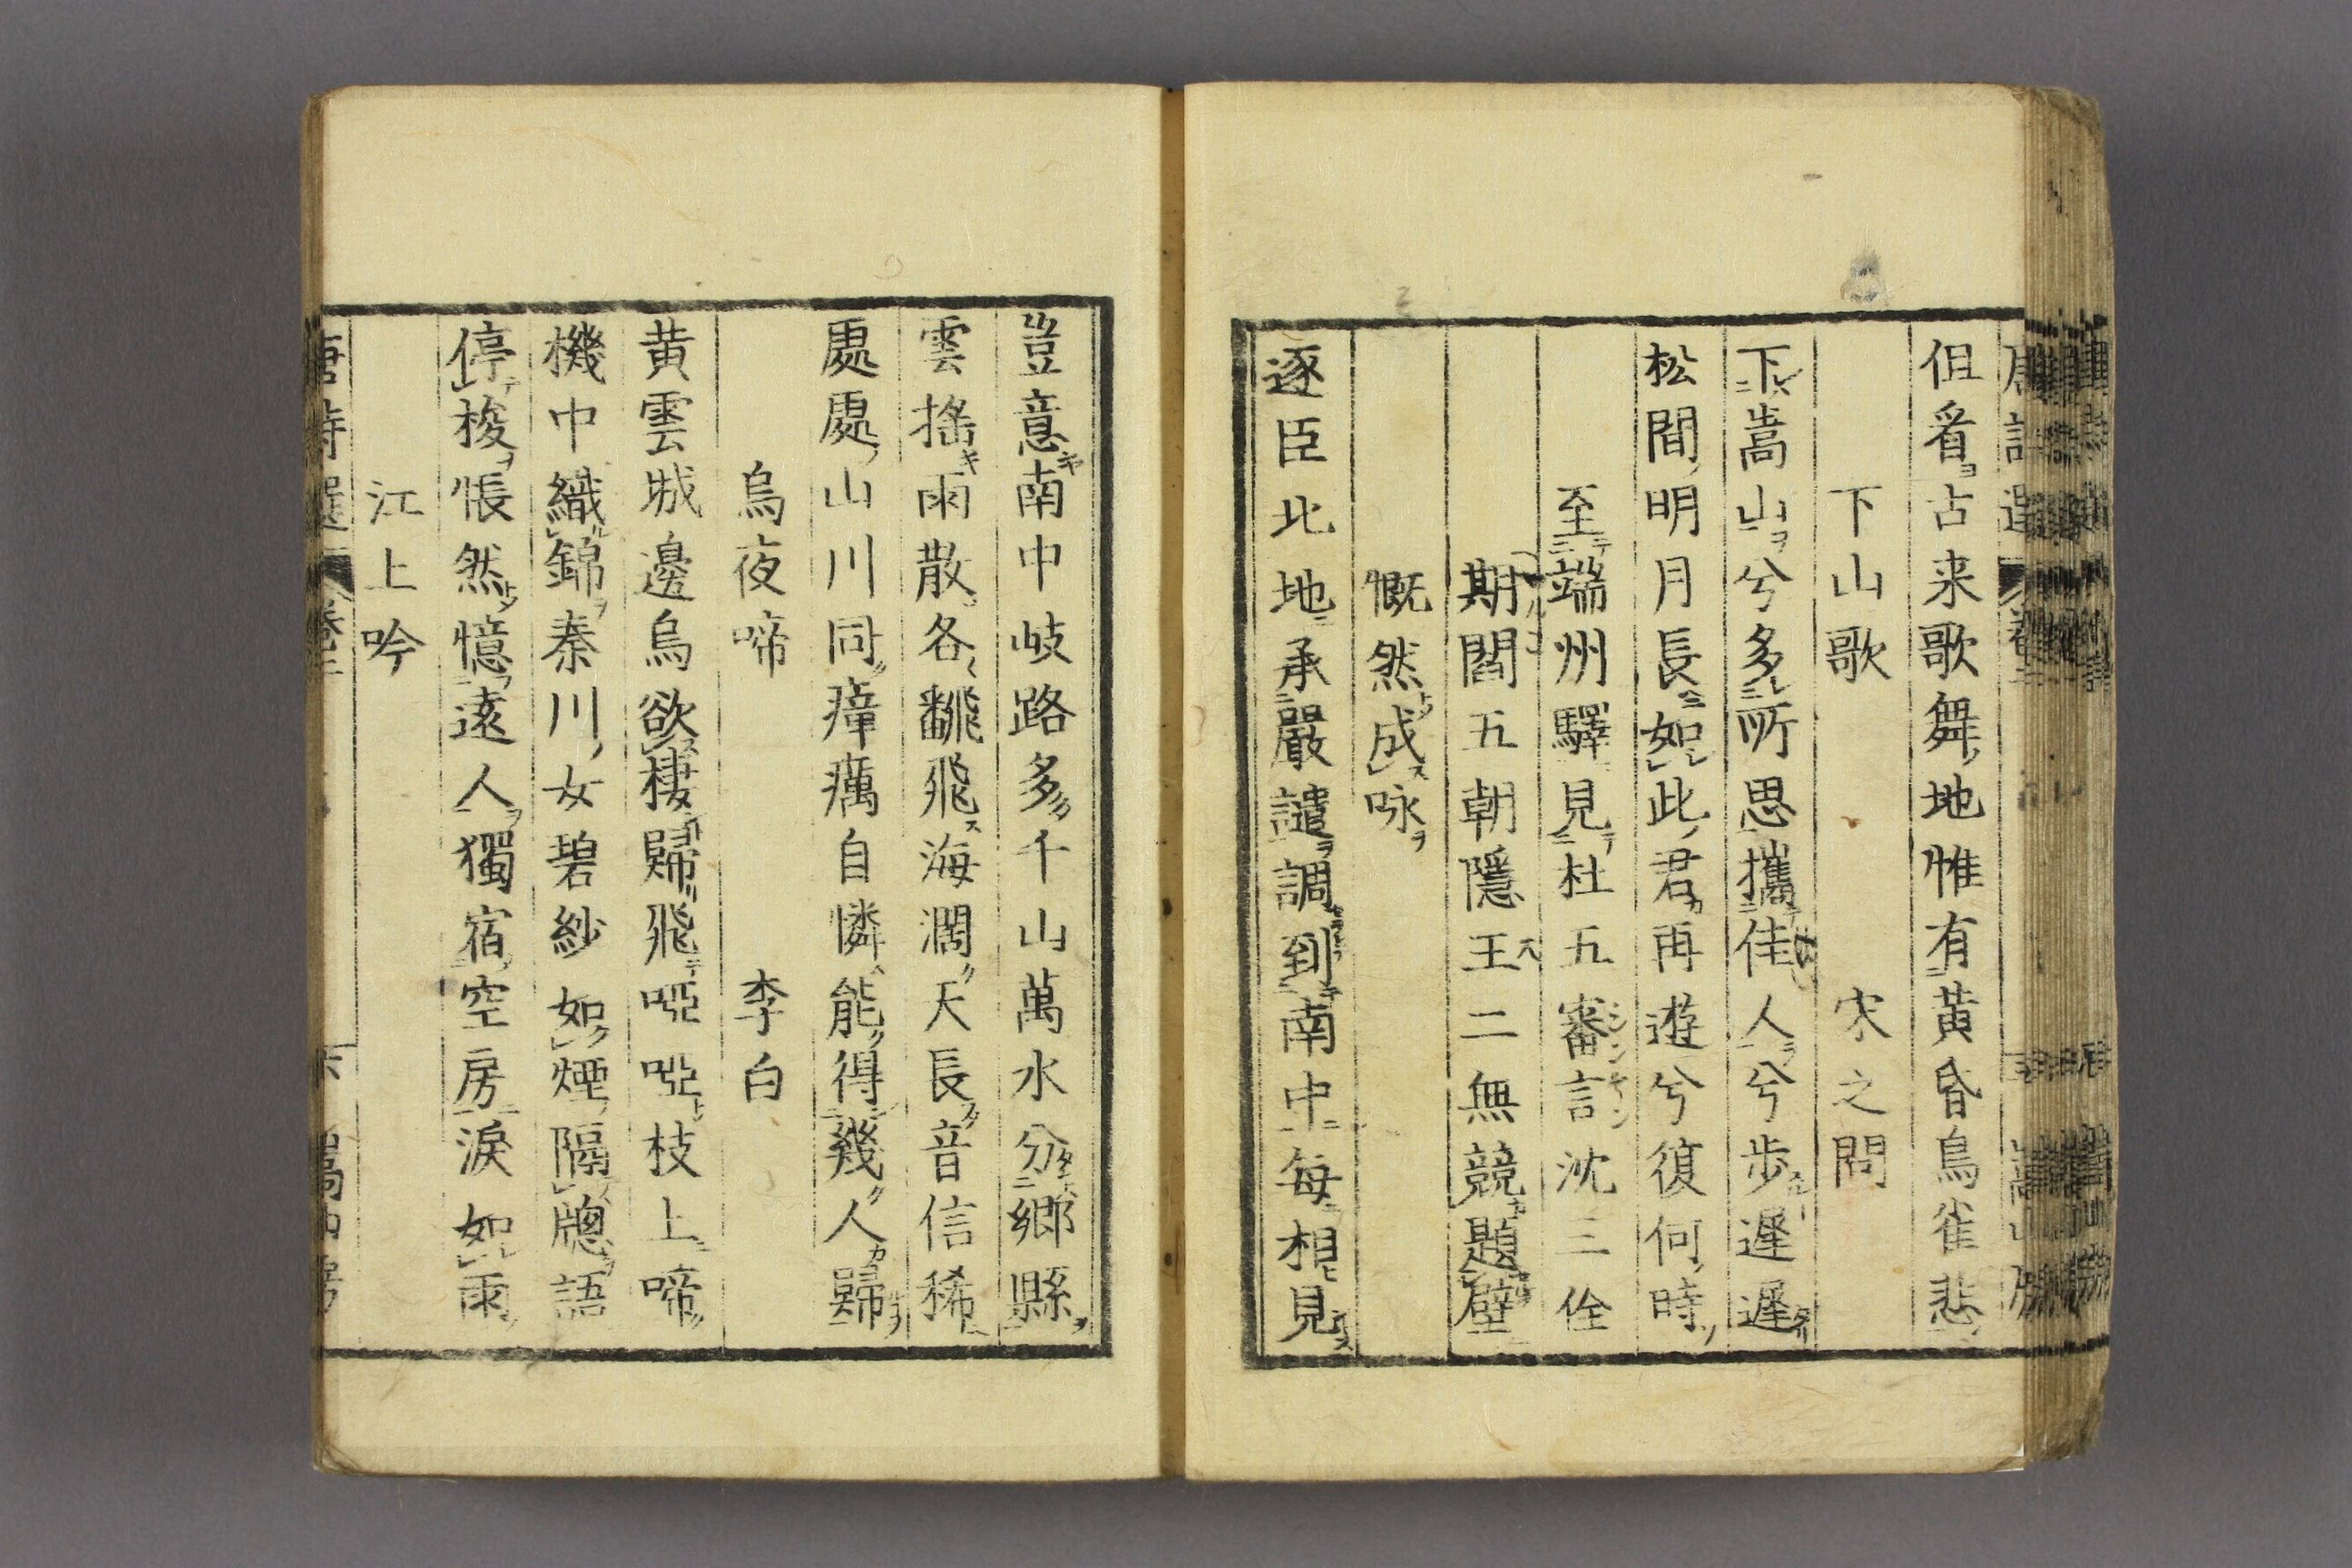 但看古来歌舞地惟有黄昏鳥雀悲
下山歌　宋之問
下嵩山兮多所思攜佳人兮歩遲遲
松間明月長如此君再遊兮復何時
至端州驛見杜五審言沈三佺
期閻五朝隱王二無競題壁
慨然成咏
逐臣北地承嚴譴調到南中每相見
豈意南中岐路多千山萬水分郷縣
雲揺雨散各飜飛海濶天長音信稀
處處山川同瘴癘自憐能得幾人歸
烏夜啼　李白
黄雲城邊烏欲棲歸飛啞啞枝上啼
機中織錦秦川女碧紗如煙隔牕語
停梭悵然憶遠人獨宿空房淚如雨
江上吟
唐詩選 卷二